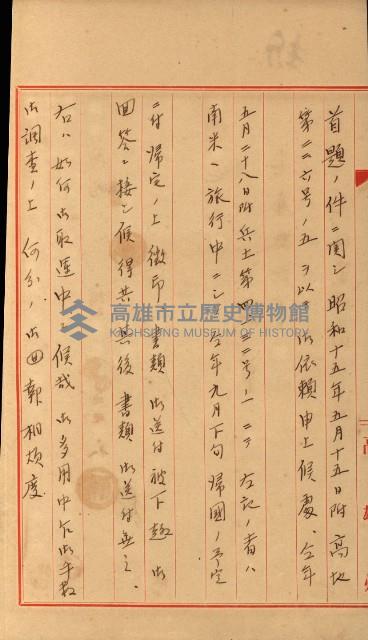 首題ノ件ニ関シ昭和十五年五月十五日附高地
第二二六号ノ五ヲ以テ御依頼申上候處、今年
五月二十八日附兵土第四二二号ノ一ニテ右記ノ者ハ
南米ヘ旅行中ニシテ今年九月下旬帰国ノ予定
ニ付帰宅ノ上徴印、書類御送付被下趣御
回答ニ接シ候得共其後書類御送付無之
右ハ如何御取運中ニ候哉御多用中乍御手数
御調査ノ上何分ノ御回報相煩度
高雄市立歷史博物館
KAOHSIUNG MUSEUM OF HISTORY
高雄